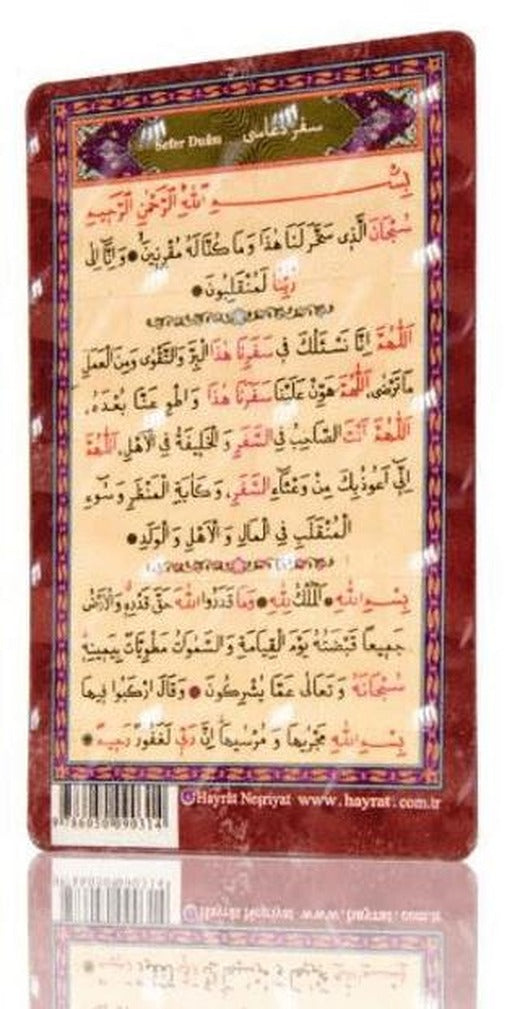 Sefer Duâsı سفر دعاسی
بِسْــــمِ اللّٰهِ الرَّحْمٰنِ الرَّحِيمِ
سُبْحَانَ الَّذِى سَخَّرَ لَنَا هٰذَا وَمَا كُنَّا لَهُ مُقْرِنِينَ ● وَاِنَّا اِلٰى
رَبِّنَا لَمُنْقَلِبُونَ ●
اَللّٰهُمَّ اِنَّا نَسْئَلُكَ فِى سَفَرِنَا هٰذَا الْبِرَّ وَالتَّقْوٰى وَمِنَ الْعَمَلِ
مَا تَرْضٰى. اَللّٰهُمَّ هَوِّنْ عَلَيْنَا سَفَرَنَا هٰذَا وَاطْوِ عَنَّا بُعْدَهُ.
اَللّٰهُمَّ اَنْتَ الصَّاحِبُ فِى السَّفَرِ وَالْخَلِيفَةُ فِى الْاَهْلِ. اَللّٰهُمَّ
اِنِّى اَعُوذُ بِكَ مِنْ وَعْثَاءِ السَّفَرِ، وَكَاٰبَةِ الْمَنْظَرِ وَسُوءِ
الْمُنْقَلَبِ فِى الْمَالِ وَالْاَهْلِ وَالْوَلَدِ ●
بِسْــمِ اللّٰهِ ● اَلْمُلْكُ لِلّٰهِ ● وَمَا قَدَرُوا اللّٰهَ حَقَّ قَدْرِهِ وَالْاَرْضُ
جَمِيعًا قَبْضَتُهُ يَوْمَ الْقِيَامَةِ وَالسَّمٰوَاتُ مَطْوِيَّاتٌ بِيَمِينِهِ
سُبْحَانَهُ وَتَعَالٰى عَمَّا يُشْرِكُونَ ● وَقَالَ ارْكَبُوا فِيهَا
بِسْــمِ اللّٰهِ مَجْرٰيهَا وَمُرْسٰيهَا اِنَّ رَبِّى لَغَفُورٌ رَحِيمٌ ●
Hayrât Neşriyat www.hayrat.com.tr
9 786050 090314